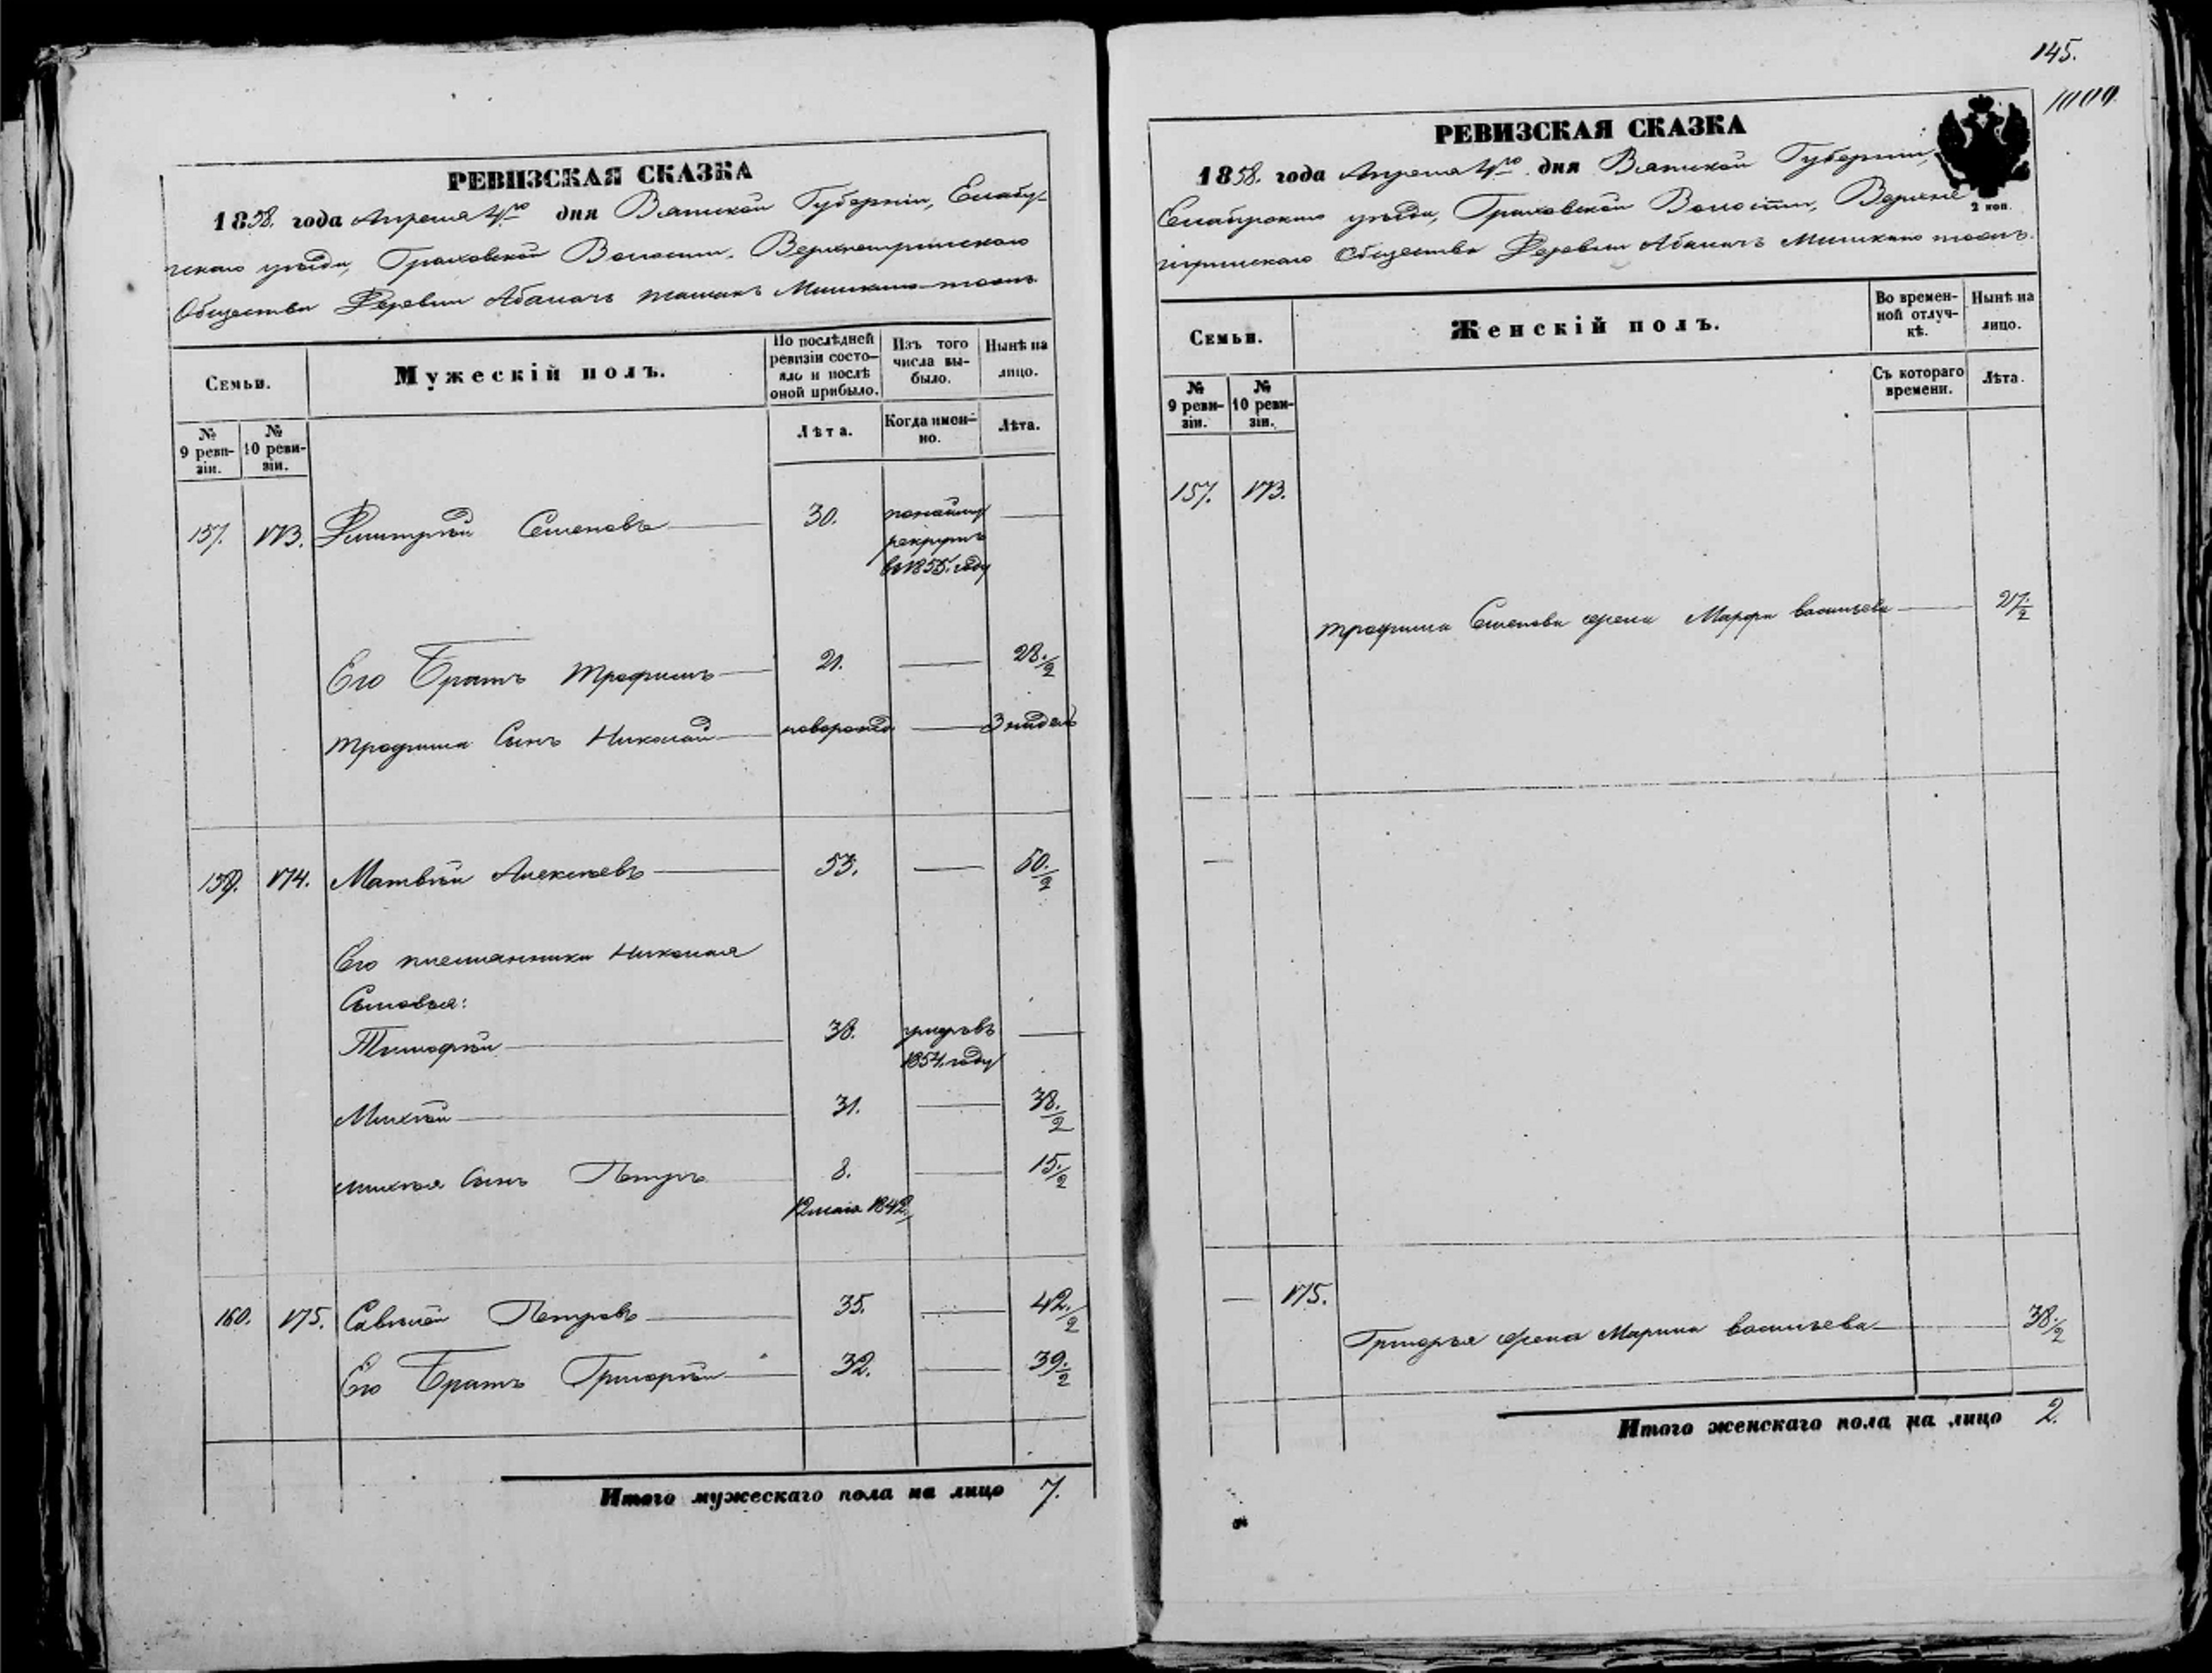 РЕВИЗСКАЯ СКАЗКА
1858. года Апреля дня Вятской Губернiи, Елабу-
уѣзда, Граховской Волости, 
Общества Деревни Абалачь
Семьи.
Мужескiй полъ.
По послѣдней ревизiи состо-
яло и послѣ оной прибыло.
Изъ того числа вы-
было.
Нынѣ на лицо.
№ 9 реви-
зiи.
№ 10 реви-
зiи.
Лѣта.
Когда имен-
но.
Лѣта.
157. 173. Дмитрiй Семеновъ 30.
рекрутъ
в 1855. году
Его Братъ Трофимъ 21. 28.½
Трофима Сынъ Николай новорожд 3
174. Матвѣй Алексѣевъ 53. 60.½
Его племянники Николая
Сыновья:
Тимофѣй 38.
1854. году
Михѣй 31. 38.½
Михѣя Сынъ Петръ 8. 15.½
12 маiя 1842.
160. 175. Савелiй Петровъ 35. 42.½
Его Братъ Григорiй 32. 39.½
Итого мужескаго пола на лицо 7.
145.
РЕВИЗСКАЯ СКАЗКА
1858. года Апреля дня Вятской Губернiи,
уѣзда, Граховской Волости, Верхне
Общества Деревни Абалачь
2 коп.
Семьи.
Женскiй полъ.
Во времен-
ной отлуч-
кѣ.
Нынѣ на лицо.
№ 9 реви-
зiи.
№ 10 реви-
зiи.
Съ котораго времени.
Лѣта.
157. 173.
Трофима Семенова жена Марфа Васильева 27.½
175.
Григорья жена Марина Васильева 38.½
Итого женскаго пола на лицо 2.